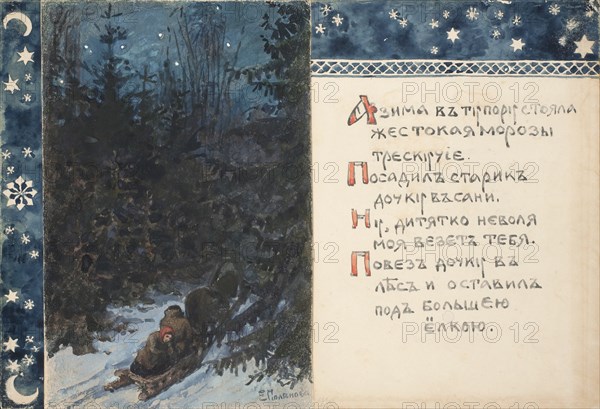 А зима въ ту пору стояла
жестокая морозы
трескучіе.
Посадилъ старикъ
дочку въ сани.
Ну, дитятко неволя
моя везетъ тебя.
Повезъ дочку въ
лѣсъ и оставилъ
подъ большею
ёлкою.
Е. Поленова
PHOTO 12